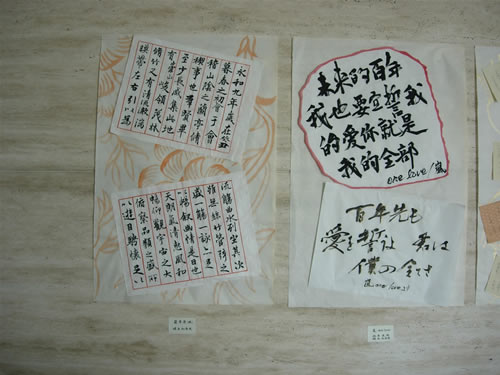 永和九年歲在癸丑
暮春之初會于會
稽山陰之蘭亭脩
禊事也羣賢畢
至少長咸集此地
有崇山峻領茂林
脩竹又有清流激湍
暎帶左右引以為
流觴曲水列坐其次
雖無絲竹管弦之
盛一觴一詠亦足以
暢叙幽情是日也
天朗氣清惠風和
暢仰觀宇宙之大
俯察品類之盛所
以遊目騁懷足以
未來的百年
我也要誓我
的愛你就是
我的全部
one love/嵐
百年先も
愛を誓うよ 君は
僕の全てさ
嵐 one love より